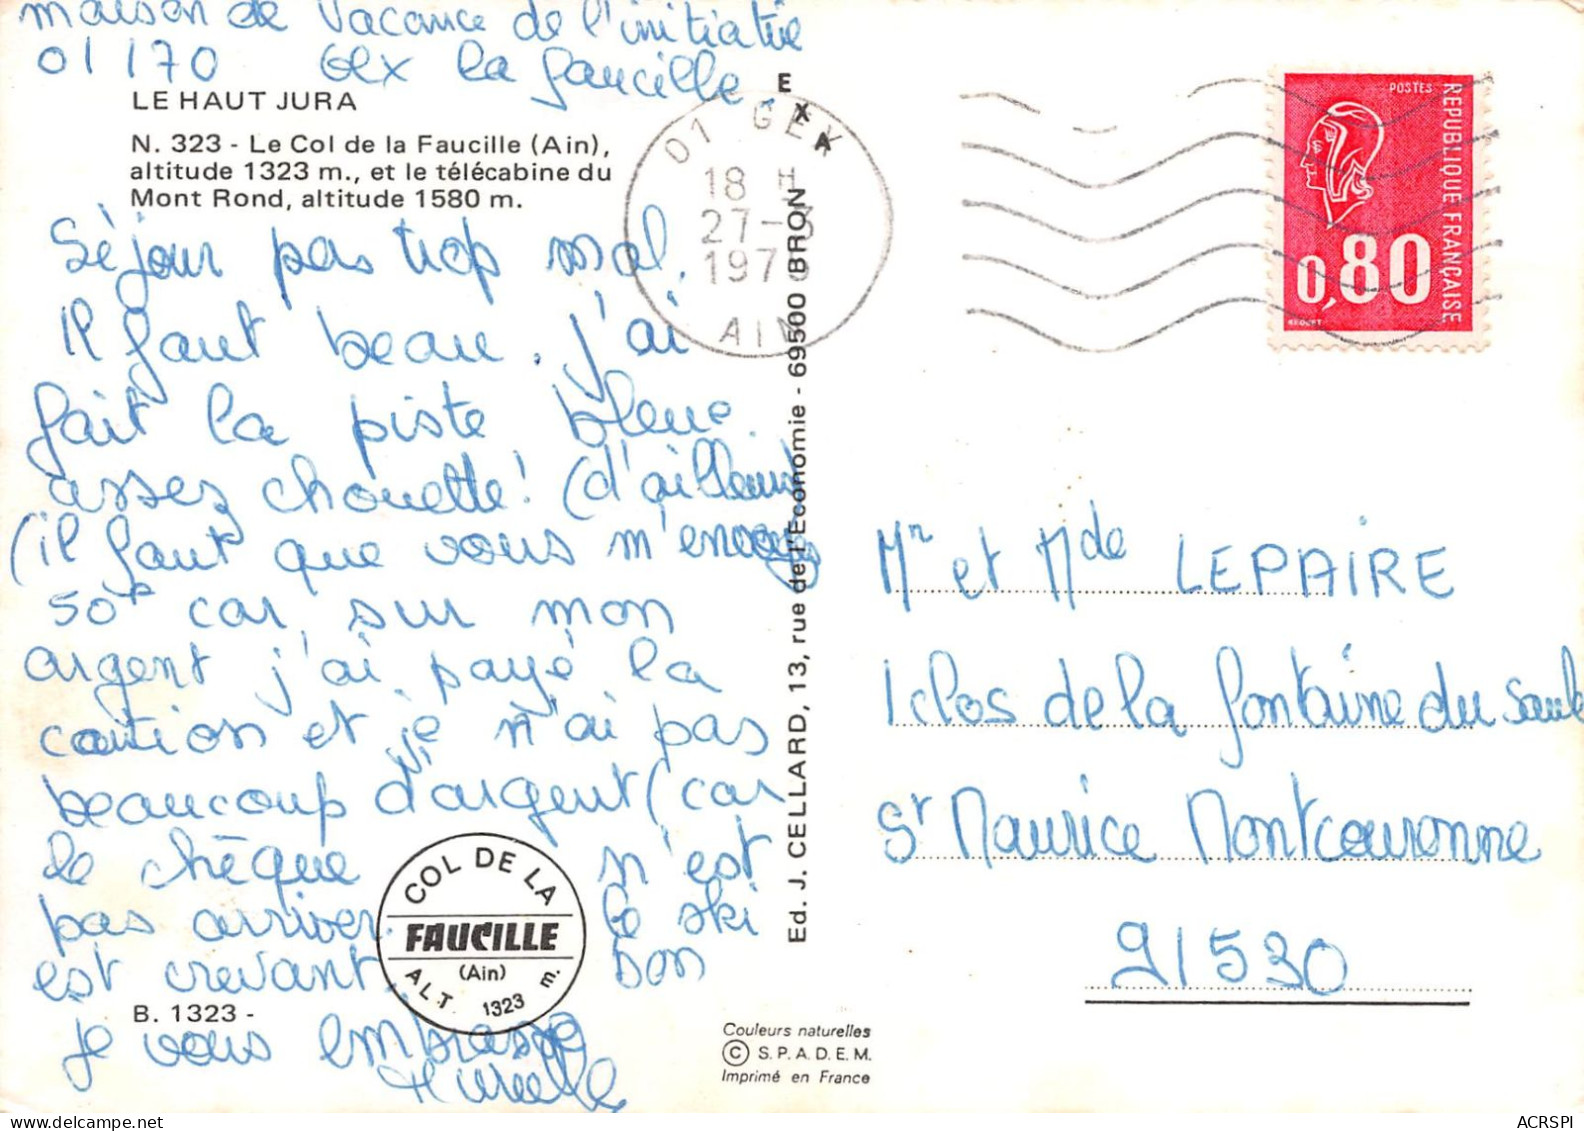 maison de vacance de l'initiative
01170 Gex la faucille
LE HAUT JURA
N. 323 - Le Col de la Faucille (Ain),
altitude 1323 m., et le télécabine du
Mont Rond, altitude 1580 m.
Séjour pas trop mal.
Il faut beau. j'ai
fait la piste bleue
assez chouette! (d'ailleurs
(il faut que vous m'envoyez
50F car sur mon
argent j'ai payé la
caution et je n'ai pas
beaucoup d'argent (car
le chèque n'est
pas arriver. le ski
est crevant. bon
je vous embrasse
B. 1323 -
COL DE LA
FAUCILLE
(Ain)
ALT. 1323 m.
EXA
Ed. J. CELLARD, 13, rue de l'Économie - 69500 BRON
Couleurs naturelles
© S.P.A.D.E.M.
Imprimé en France
01 GEX
18 H
27-3
197
AIN
POSTES
REPUBLIQUE FRANÇAISE
0,80
Mr et Mde LEPAIRE
1 clos de la fontaine du Saule
St Maurice Montcouronne
91530
ACRSPI